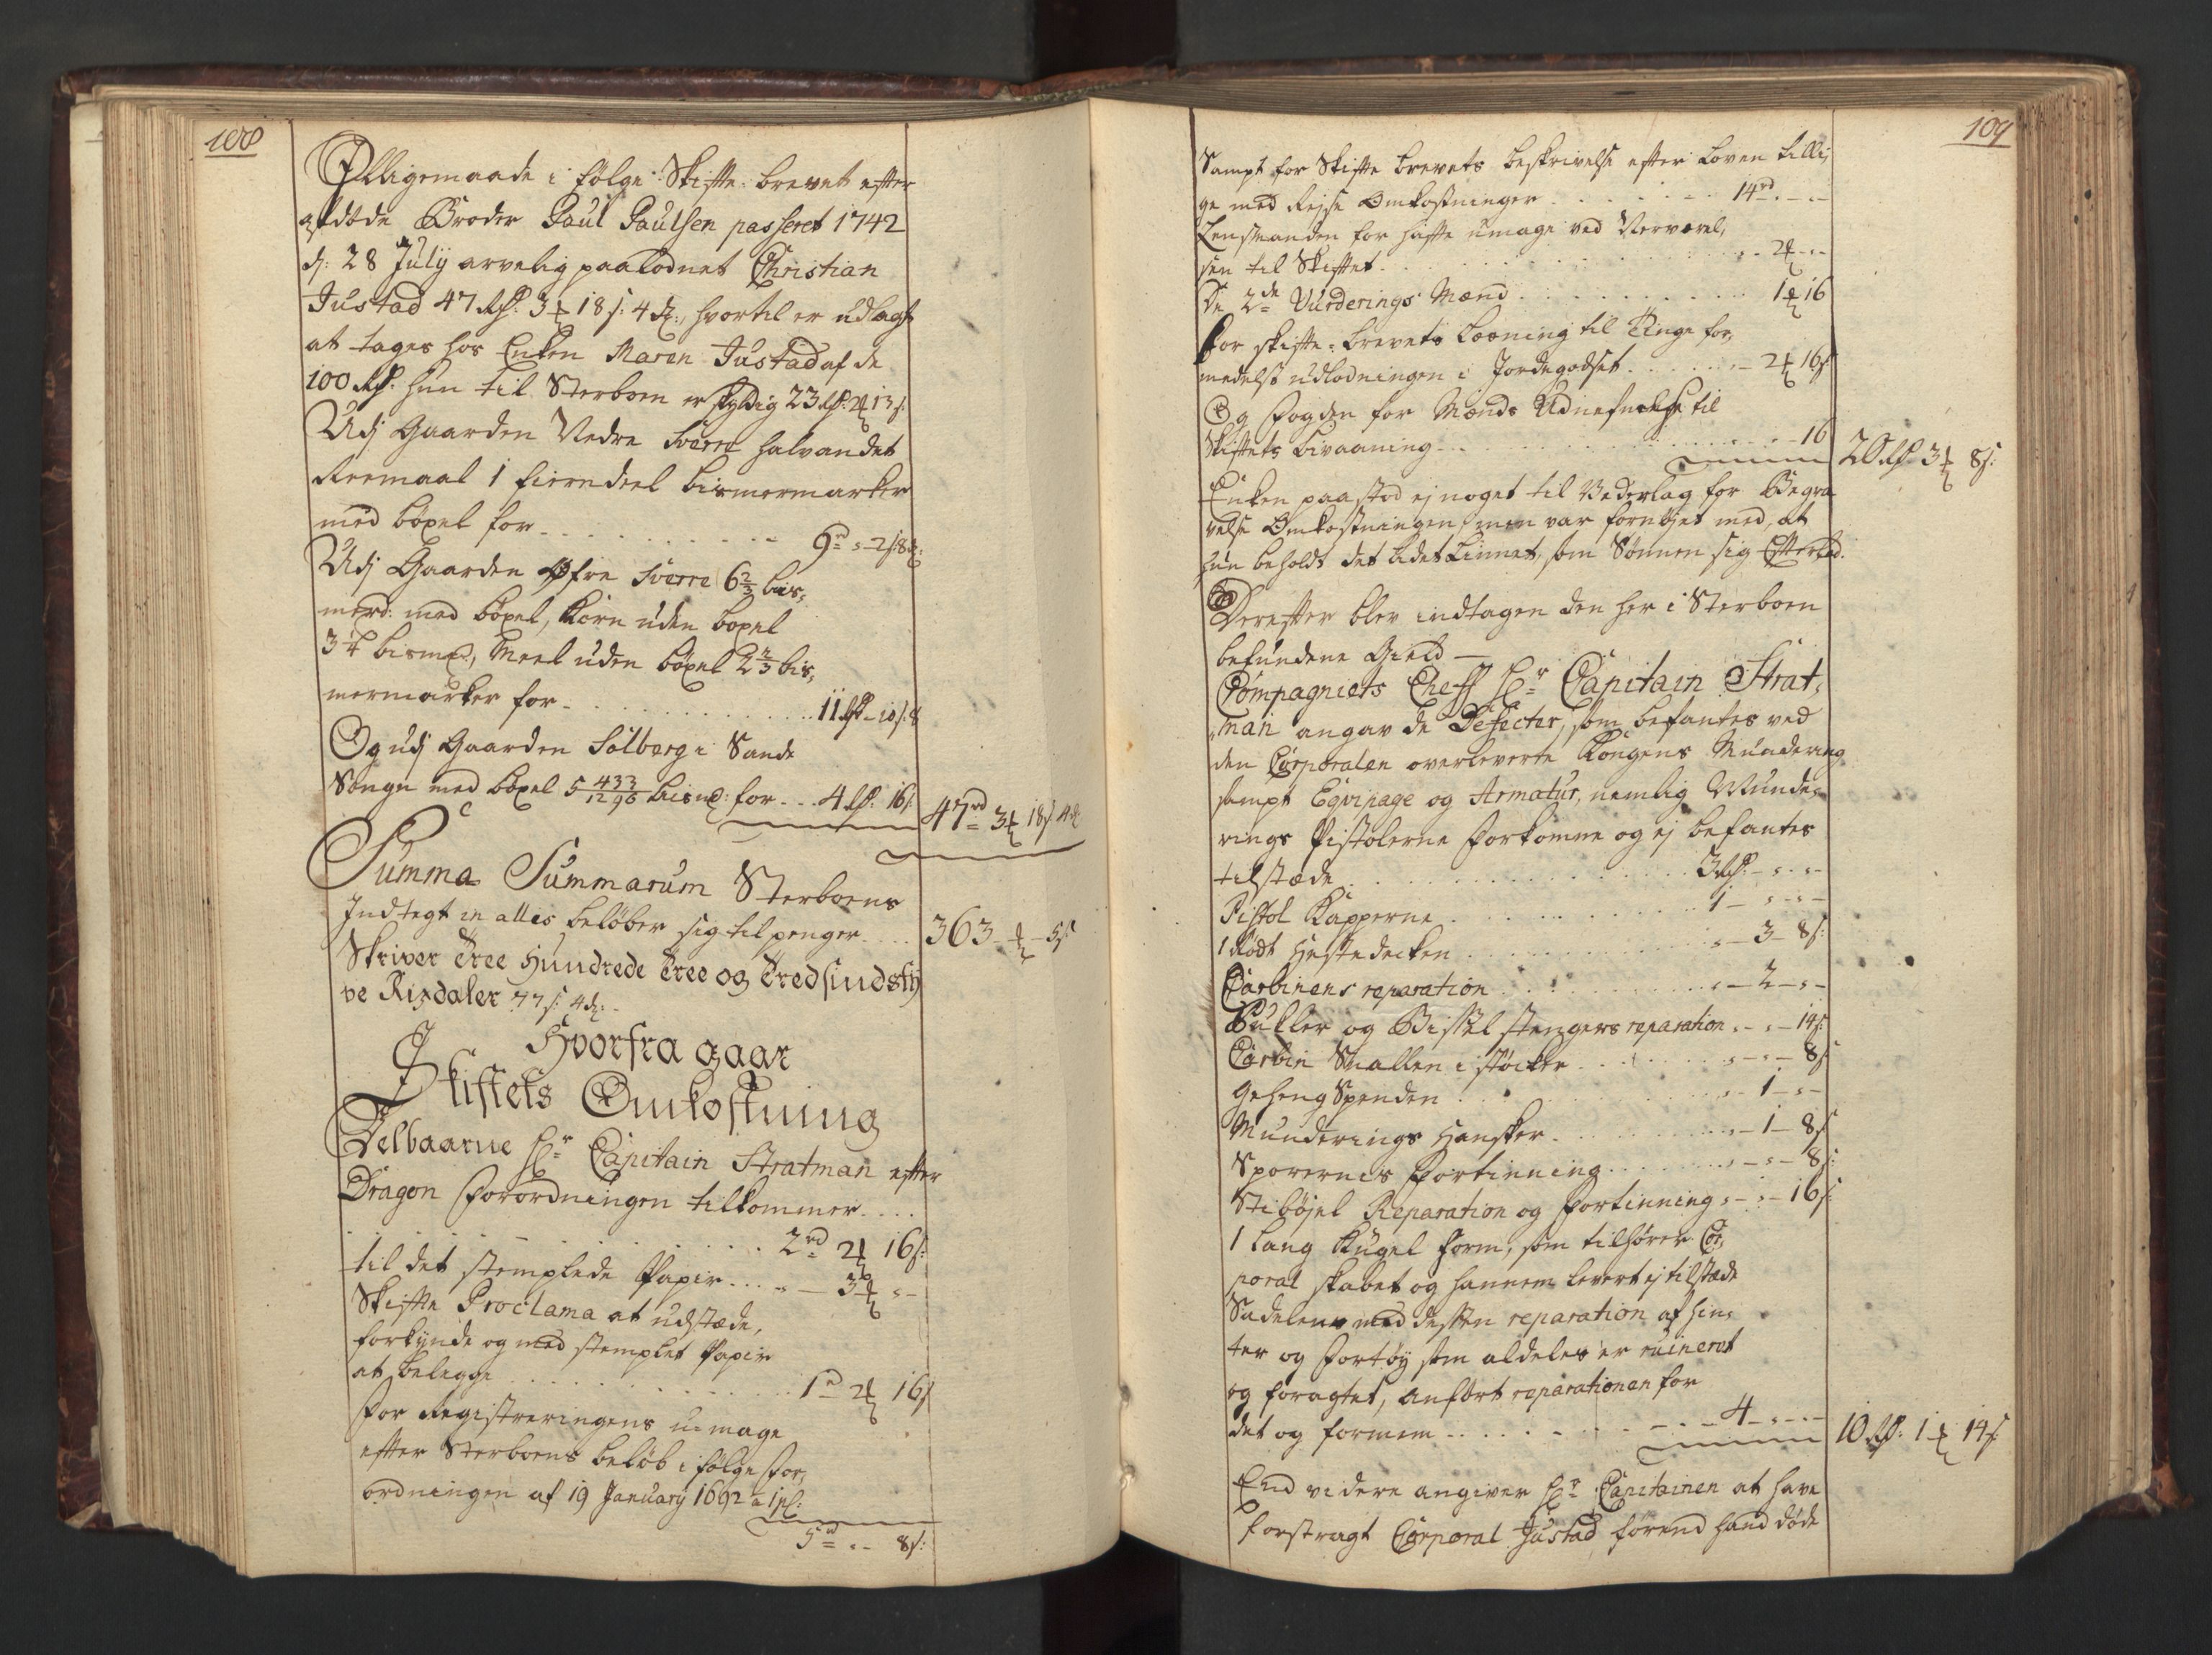 108
Ligemaade i følge Skifte-brevet efter
afdøde Broder Paul Paulsen passeret 1742
d: 28 July arvelig paalodnet Christian
Justad 47 Rd: 3 ꝥ 18 s: 4 d:, hvortil er udlagt
at tages hos Enken Maren Justad af de
100 Rd: hun til Sterboen er skyldig 23 Rd: 2 ꝥ 13 s:
Udj Gaarden Nedre Sverre halvandet
Reemaal 1 fierendeel bismermarker
med böxel for 9 rd - 2 s: 8 d:
Udj Gaarden Øfre Sverre 6 2/3 bis,
merd: med böxel, Korn uden boxel
bismd:, Meel uden böxel bis,
mermarker for 11 Rd - 10 s: 8
Og udj Gaarden Solberg i Sande
Sogn med böxel 5 433/1296 bismd: for 4 Rd: 16 s: 47 rd 3 ꝥ 18 s 4 d
Summa Summarum Sterboens
Indtegt in alles beløber sig til penger 363 - ꝥ - 5 s
Skriver Tree Hundrede Tree og Tredsindsty
ve Rixdaler s: 4 d:
Hvorfra gaar
Skiftets Omkostning
Velbaarne Hr Capitain Stratman efter
Dragon Forordningen tilkommer
2 rd 2 ꝥ 16 s:
til det stemplede Papir - 3 ꝥ -
Skifte Proclama at udstæde,
forkynde og med stemplet Papir
at belegge 1 rd 2 ꝥ 16 s
For Registreringens umage
efter Sterboens beløb i følge For,
ordningen af 19 January 1692
5 rd - 8 s:
109
Sampt for Skifte brevets beskrivelse efter Loven tilli,
ge med Rejse Omkostninger 14 rd - -
Lensmanden for hafte umage ved Nerværel,
sen til Skiftet 2 ꝥ - -
De 2de Vurderings Mænd 1 ꝥ 16
For skifte-brevets Læsning til Tinge for,
medelst udlodningen i Jordegodset 2 ꝥ 16 s
Og Fogden for Mænds Udnefnelse til
Skiftets bivaaning 16 20 Rd 3 ꝥ 8 s:
Enken paastod ej noget til Vederlag for Begra
velse Omkostningen, men var fornøjet med, at
hun beholdt det lidet Linnet, som Sønnen sig Efterlod.
Derefter blev indtagen den her i Sterboen
befundene Gield
Compagniets Cheff Hr Capitain Strat,
man angav de Defecter, som befantes ved
den Corporalen overleverte Kongens Mundering
sampt Eqvipage og Armatur, nemlig Munde,
rings Pistolerne forkomne og ej befantes
tilstæde 3 Rd - -
Pistol Kapperne 1 - -
1 Rødt Hestedecken - 3 - 8 s:
Carbinens reparation - 2 - -
Buller og Bissel stengers reparation - - 14 s:
Carbin Snallen i støcker - - 8 s
Geheng Spenden - 1 - -
Munderings Hansker - 1 - 8 s
Sporernes Fortinning - - 8 s:
Stibøjel Reparation og Fortinning - - 16 s:
1 lang Kugel form, som tilhører Cor,
poral skabet og hannem levert ej tilstæde
Sadelen med dessen reparation af Hin,
ter og Fortøy som aldeles er ruineret
og foragtet, anført reparationen for
det og formem - 4 - - 10 Rd: 1 ꝥ 14 s
End videre angiver Hr Capitainen at have
forstragt Corporal Justad førend hand døde